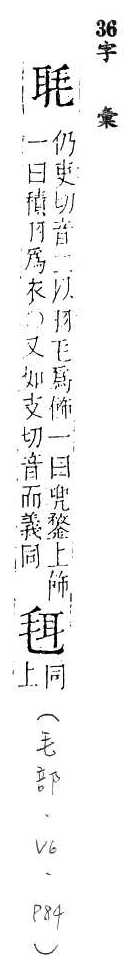 36
字彙
毦
仍吏切音二以羽毛爲飾一曰兜鍪上飾
一曰積羽爲衣 又如支切音而義同
毦 同上
(毛部.V6.P84)